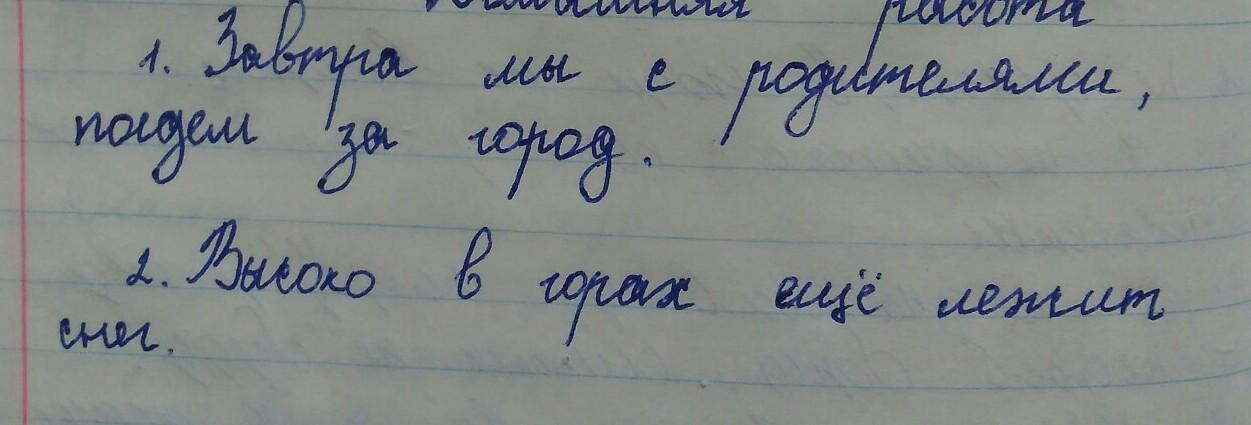 Домашняя работа
1. Завтра мы с родителями,
поедем за город.
2. Высоко в горах ещё лежит
снег.